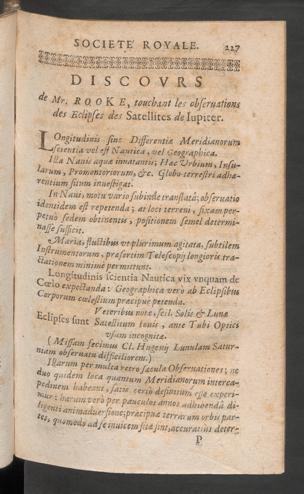 SOCIETE ROYALE. 227
DISCOVRS
de Mr. ROOKE, touchant les obseruations
des Eclipses des Satellites de Iupiter.
LOngitudinis siue Differentiæ Meridianorum
scientia vel est Nautica, vel Geographica.
Illa Nauis aquæ innatantis; Hæc Vrbium, Insu-
larum, Promontoriorum, &c. Globo terrestri adhæ-
rentium situm inuestigat.
In Naui, motu vario subinde translatâ; obseruatio
identidem est repetenda; at loci terreni, fixam per-
petuò sedem obtinentis, positionem semel determi-
nasse sufficit.
Maria, fluctibus vt plurimùm agitata, subtilem
Instrumentorum, præsertim Telescopij longioris tra-
ctationem minimè permittunt.
Longitudinis scientia Nautica vix vnquam de
Cœlo expectanda: Geographica verò ab Eclipsibus
Corporum cælestium præcipuè petenda.
Veteribus notæ, scil. Solis & Lunæ
Eclipses sunt Satellitum Iouis, ante Tubi Optici
vsum incognitæ.
(Missam fecimus Cl. Hugenij Lunulam Satur-
niam obseruatu difficiliorem.)
Illarum per multa retro sæcula Obseruationes; ne
duo quidem loca quantum Meridianorum interca-
pedinem habeant, satis certò definitum esse experi-
mur: harum verò per pauculos annos adhibendâ di-
ligenti animaduersione; præcipuæ terrarum orbis par-
tes, quomodo ad se inuicem sitæ sint, accuratiùs deter-
P